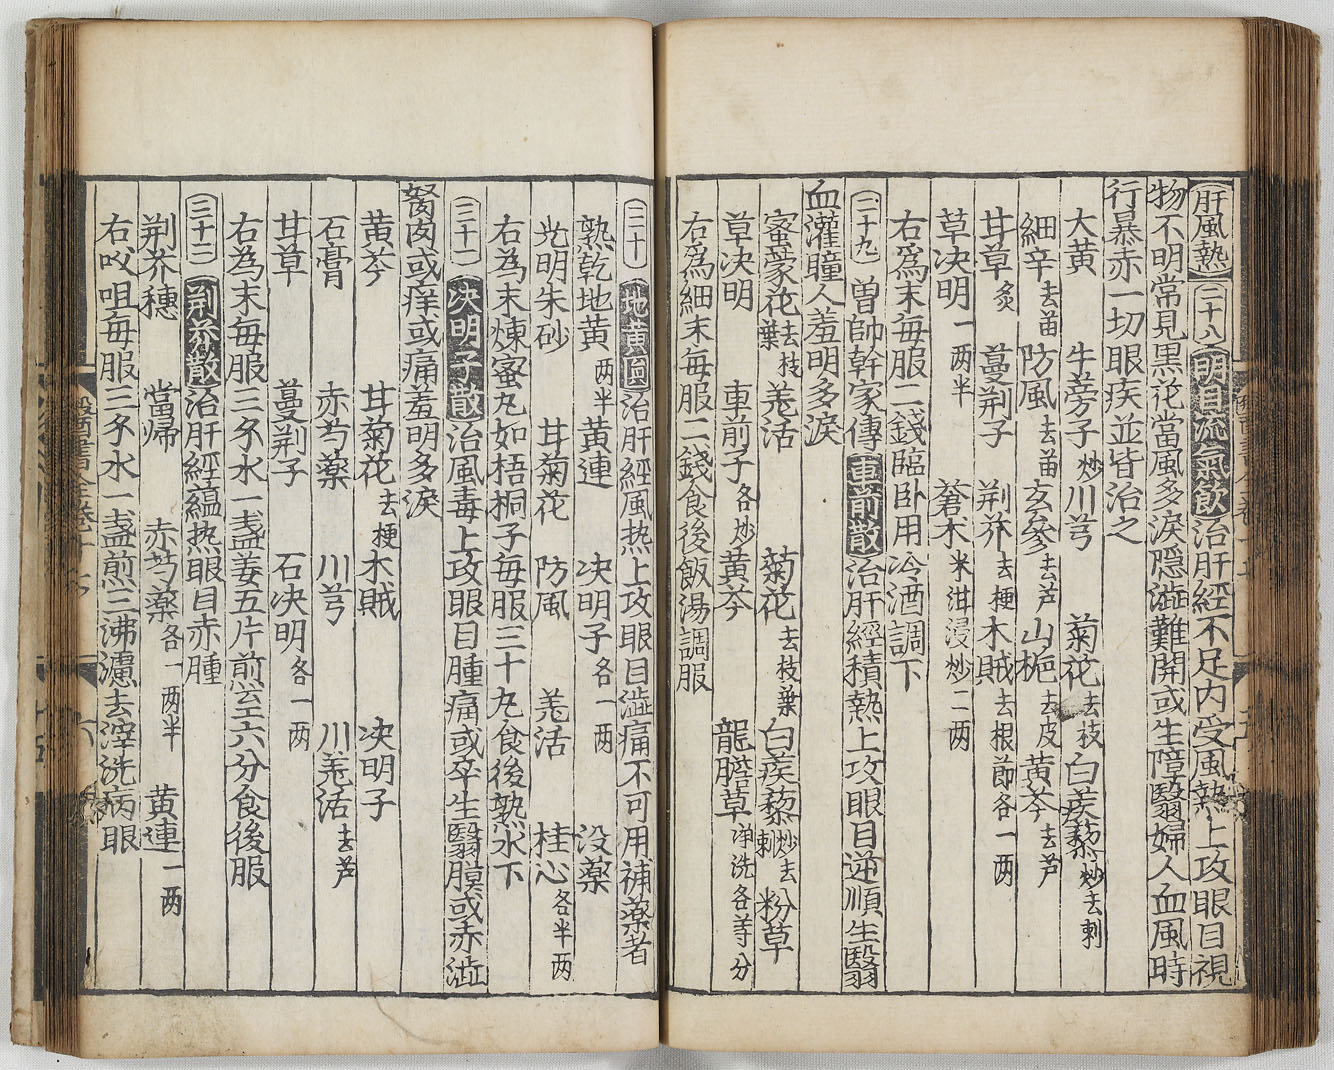 肝風熱 二十八 明目流氣飲 治肝經不足内受風熱上攻眼目視
物不明常見黒花當風多淚隠澁難開或生障翳婦人血風時
行暴赤一切眼疾並皆治之
大黄 牛蒡子炒 川芎 菊花去枝 白蒺蔾炒去刺
細辛去苗 防風去苗 玄參去芦 山栀去皮 黄芩去芦
甘草炙 蔓荆子 荆芥去梗 木賊去根節各一两
草决明一两半 蒼术米泔浸炒二两
右爲末每服二錢臨卧用冷酒調下
二十九 曽帥幹家傳 車前散 治肝經積熱上攻眼目逆順生翳
血灌瞳人羞明多淚
蜜蒙花去枝葉 羌活 菊花去枝葉 白蒺藜炒去刺 粉草
草决明 車前子各炒 黄芩 龍膽草净洗各等分
右爲細末每服二錢食後飯湯調服
三十 地黄圓 治肝經風热上攻眼目澁痛不可用補藥者
熟乾地黄两半 黄連 决明子各一两 没藥
光明朱砂 甘菊花 防風 羌活 桂心各半两
右為末煉蜜丸如梧桐子每服三十丸食後熟水下
三十一 决明子散 治風毒上攻眼目腫痛或卒生翳膜或赤澁
胬肉或痒或痛羞明多淚
黄芩 甘菊花去梗 木賊 决明子
石膏 赤芍藥 川芎 川羌活去芦
甘草 蔓荆子 石决明各一两
右為末每服三夕水一盞姜五片煎至六分食後服
三十二 荆芥散 治肝經藴热眼目赤腫
荆芥穗 當帰 赤芍藥各一两半 黄連一两
右㕮咀每服三夕水一盏煎三沸濾去滓洗病眼